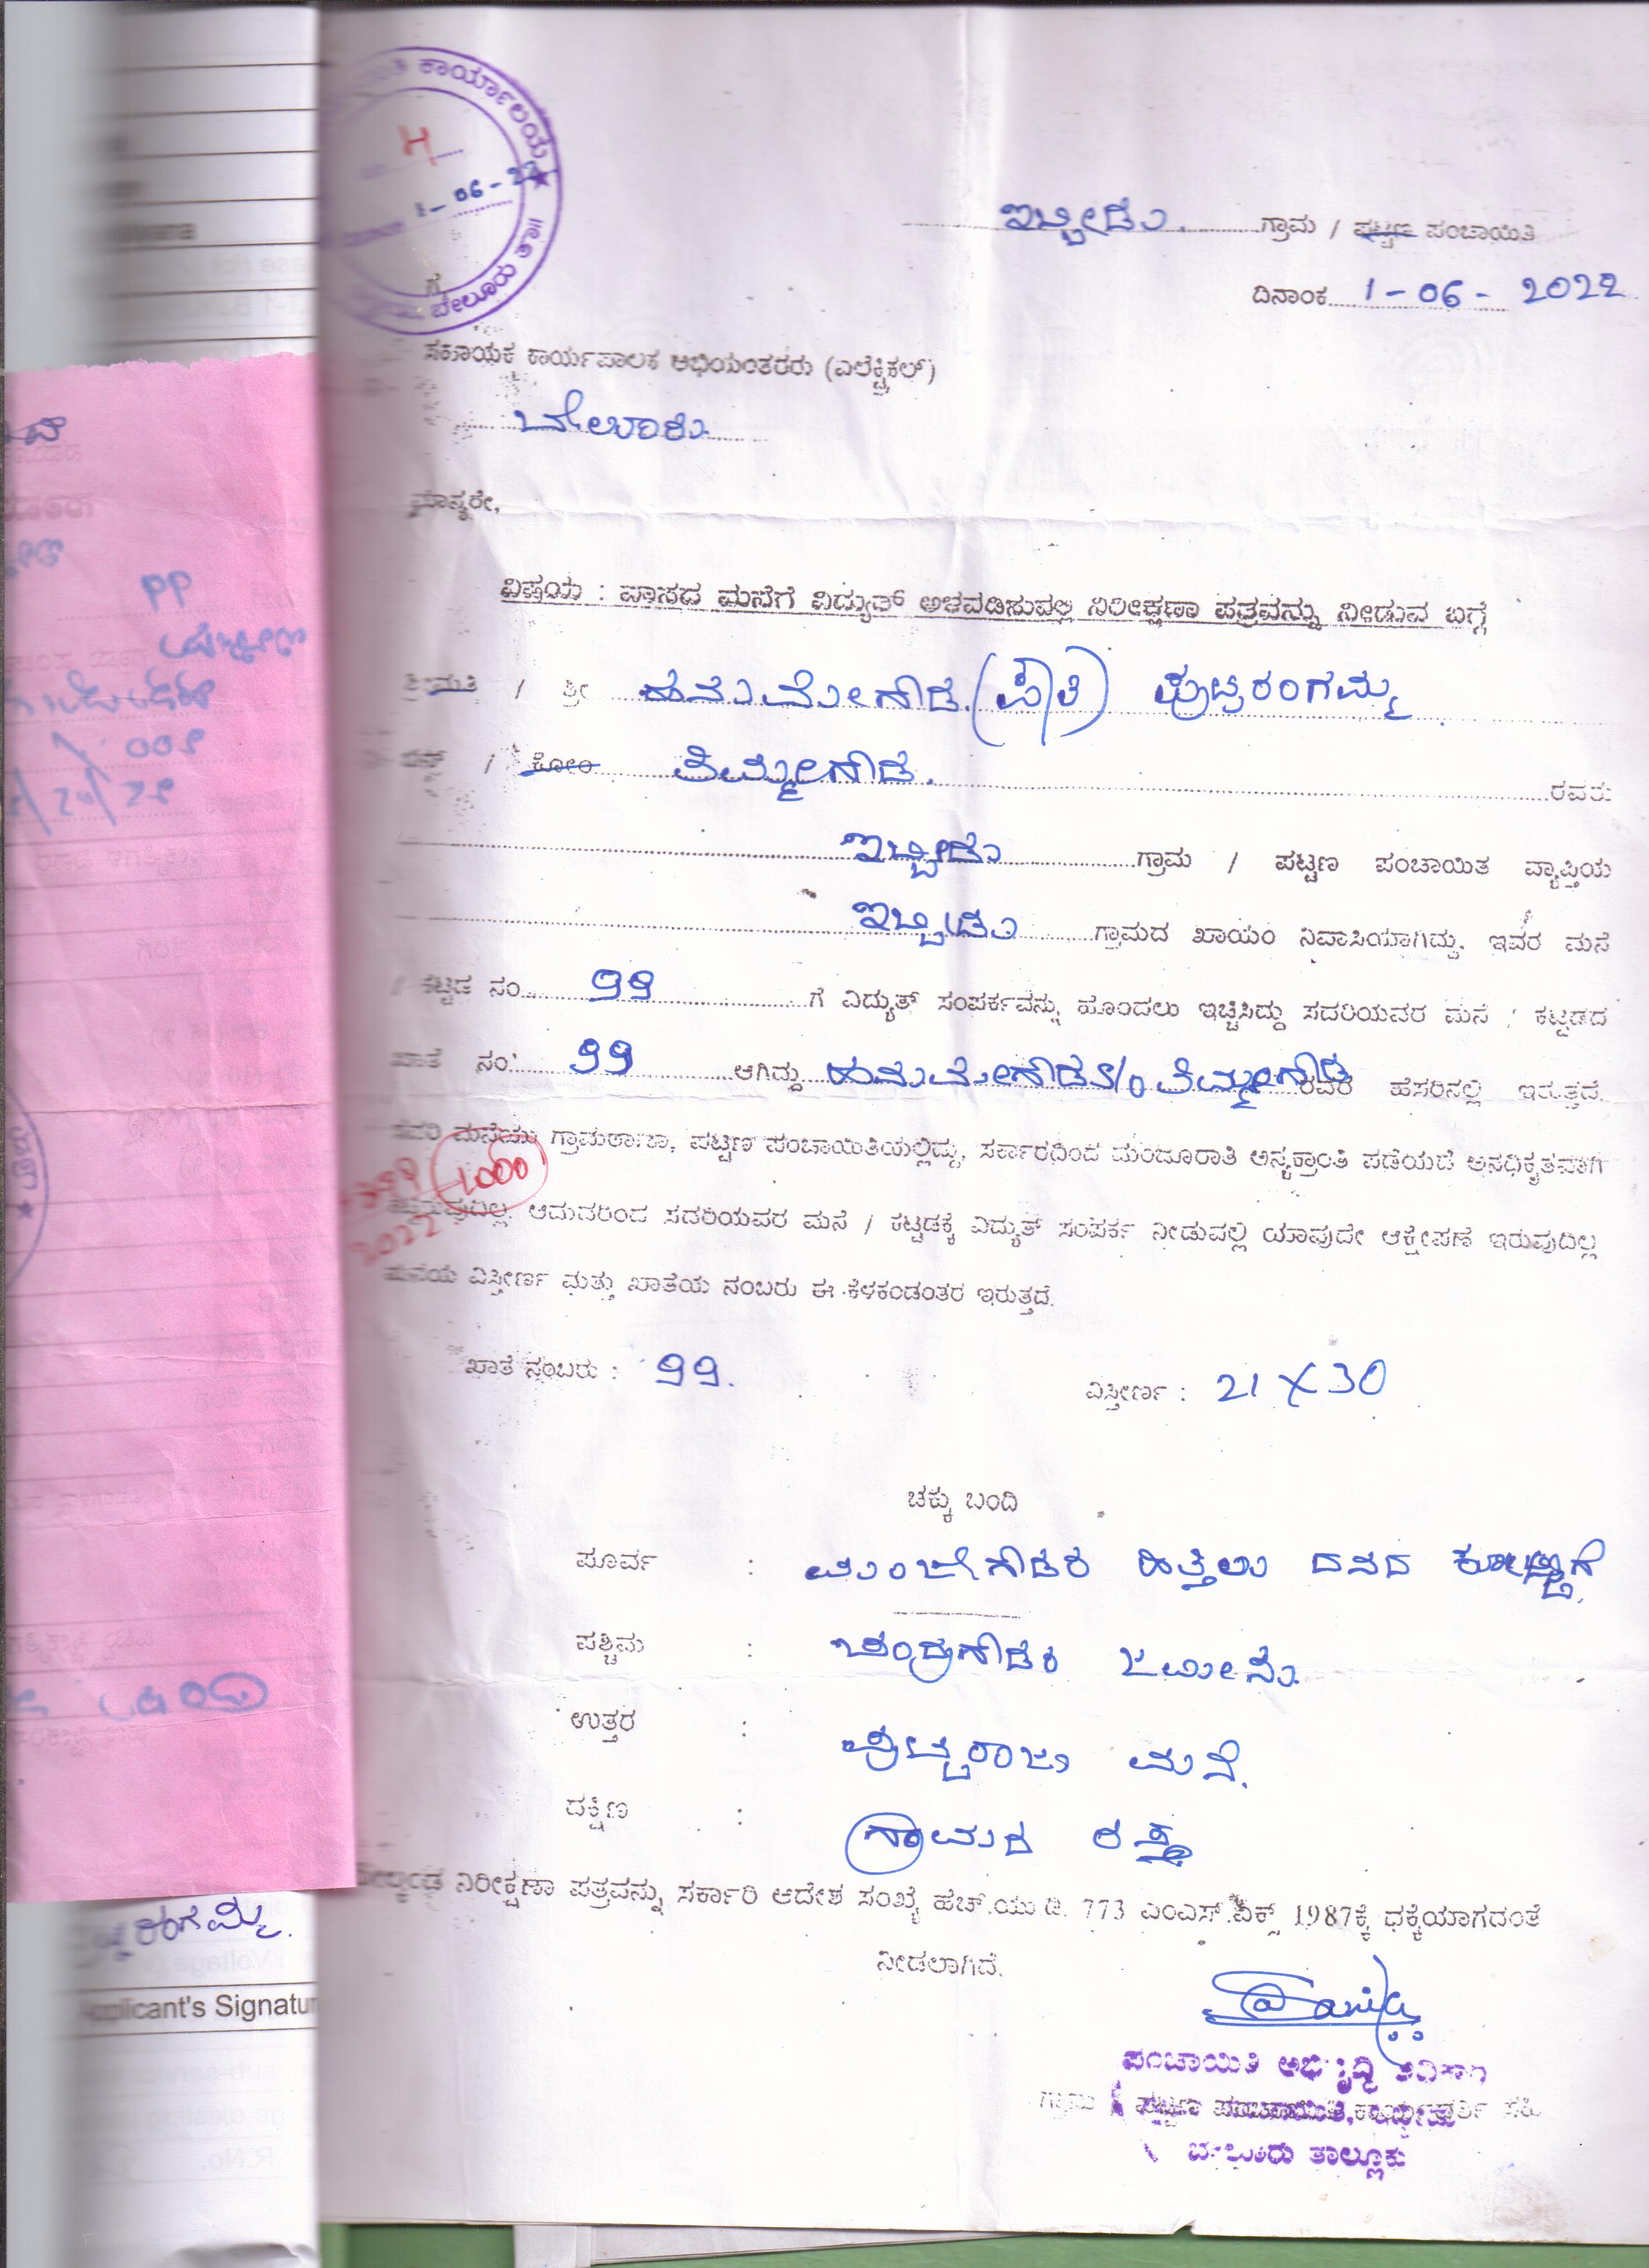 ಕಾರ್ಯಾಲಯ ★
1-06-22
ಬೇಲೂರು ತಾ॥
ಇಬ್ಬೀಡು. ಗ್ರಾಮ / ಪಟ್ಟಣ ಪಂಚಾಯಿತಿ
ದಿನಾಂಕ 1-06-2022
ಗೆ
ಸಹಾಯಕ ಕಾರ್ಯಪಾಲಕ ಅಭಿಯಂತರರು (ಎಲೆಕ್ಟ್ರಿಕಲ್)
ಬೇಲೂರು
ಮಾನ್ಯರೇ,
ವಿಷಯ : ವಾಸದ ಮನೆಗೆ ವಿದ್ಯುತ್ ಅಳವಡಿಸುವಲ್ಲಿ ನಿರೀಕ್ಷಣಾ ಪತ್ರವನ್ನು ನೀಡುವ ಬಗ್ಗೆ
ಶ್ರೀಮತಿ / ಶ್ರೀ ಹನುಮೇಗೌಡ (ಪೌತಿ) ಪುಟ್ಟರಂಗಮ್ಮ
ಬಿನ್ / ಕೋಂ ತಿಮ್ಮೇಗೌಡ. ರವರು
ಇಬ್ಬೀಡು ಗ್ರಾಮ / ಪಟ್ಟಣ ಪಂಚಾಯಿತ ವ್ಯಾಪ್ತಿಯ
ಇಬ್ಬೀಡು ಗ್ರಾಮದ ಖಾಯಂ ನಿವಾಸಿಯಾಗಿದ್ದು, ಇವರ ಮನೆ
/ ಕಟ್ಟಡ ನಂ. 99 ಗೆ ವಿದ್ಯುತ್ ಸಂಪರ್ಕವನ್ನು ಹೊಂದಲು ಇಚ್ಚಿಸಿದ್ದು ಸದರಿಯವರ ಮನೆ / ಕಟ್ಟಡದ
ಖಾತೆ ನಂ. 99 ಆಗಿದ್ದು ಹನುಮೇಗೌಡ S/o ತಿಮ್ಮೇಗೌಡ ರವರ ಹೆಸರಿನಲ್ಲಿ ಇರುತ್ತದೆ.
ಸದರಿ ಮನೆಯು ಗ್ರಾಮಠಾಣಾ, ಪಟ್ಟಣ ಪಂಚಾಯಿತಿಯಲ್ಲಿದ್ದು, ಸರ್ಕಾರದಿಂದ ಮಂಜೂರಾತಿ ಅನ್ಯಕ್ರಾಂತಿ ಪಡೆಯದೆ ಅನಧಿಕೃತವಾಗಿ
1000
ಕಟ್ಟಿರುವುದಿಲ್ಲ. ಆದುದರಿಂದ ಸದರಿಯವರ ಮನೆ / ಕಟ್ಟಡಕ್ಕೆ ವಿದ್ಯುತ್ ಸಂಪರ್ಕ ನೀಡುವಲ್ಲಿ ಯಾವುದೇ ಆಕ್ಷೇಪಣೆ ಇರುವುದಿಲ್ಲ
2022
ಮನೆಯ ವಿಸ್ತೀರ್ಣ ಮತ್ತು ಖಾತೆಯ ನಂಬರು ಈ ಕೆಳಕಂಡಂತರ ಇರುತ್ತದೆ.
ಖಾತೆ ನಂಬರು : 99. ವಿಸ್ತೀರ್ಣ : 21 X 30
ಚಕ್ಕು ಬಂದಿ
ಪೂರ್ವ : ಮಂಜೇಗೌಡರ ಹಿತ್ತಲು ದನದ ಕೊಟ್ಟಿಗೆ.
ಪಶ್ಚಿಮ : ಚಂದ್ರೇಗೌಡರ ಜಮೀನು
ಉತ್ತರ : ಪುಟ್ಟರಾಜು ಮನೆ.
ದಕ್ಷಿಣ : ಗ್ರಾಮದ ರಸ್ತೆ
ಮೇಲ್ಕಂಡ ನಿರೀಕ್ಷಣಾ ಪತ್ರವನ್ನು ಸರ್ಕಾರಿ ಆದೇಶ ಸಂಖ್ಯೆ ಹೆಚ್.ಯು.ಡಿ. 773 ಎಂಎನ್.ಎಕ್ಸ್ 1987ಕ್ಕೆ ಧಕ್ಕೆಯಾಗದಂತೆ
ನೀಡಲಾಗಿದೆ.
ಪಂಚಾಯಿತಿ ಅಭಿವೃದ್ಧಿ ಅಧಿಕಾರಿ
ಗ್ರಾಮ / ಪಟ್ಟಣ ಪಂಚಾಯಿತಿ, ಕಾರ್ಯದರ್ಶಿ ಸಹಿ
ಬೇಲೂರು ತಾಲ್ಲೂಕು
Applicant's Signatur